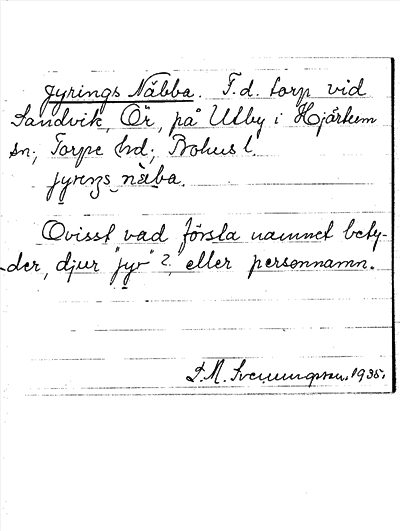 Jyrings Näbba. F.d. torp vid
Sandvik, Ör, på Utby i Hjärtum
sn; Torpe hd; Bohus l.
jyrengs näba.
Ovisst vad första namnet bety-
der, djur "jyr"? eller personnamn.
S. M. Svenungsson. 1935.